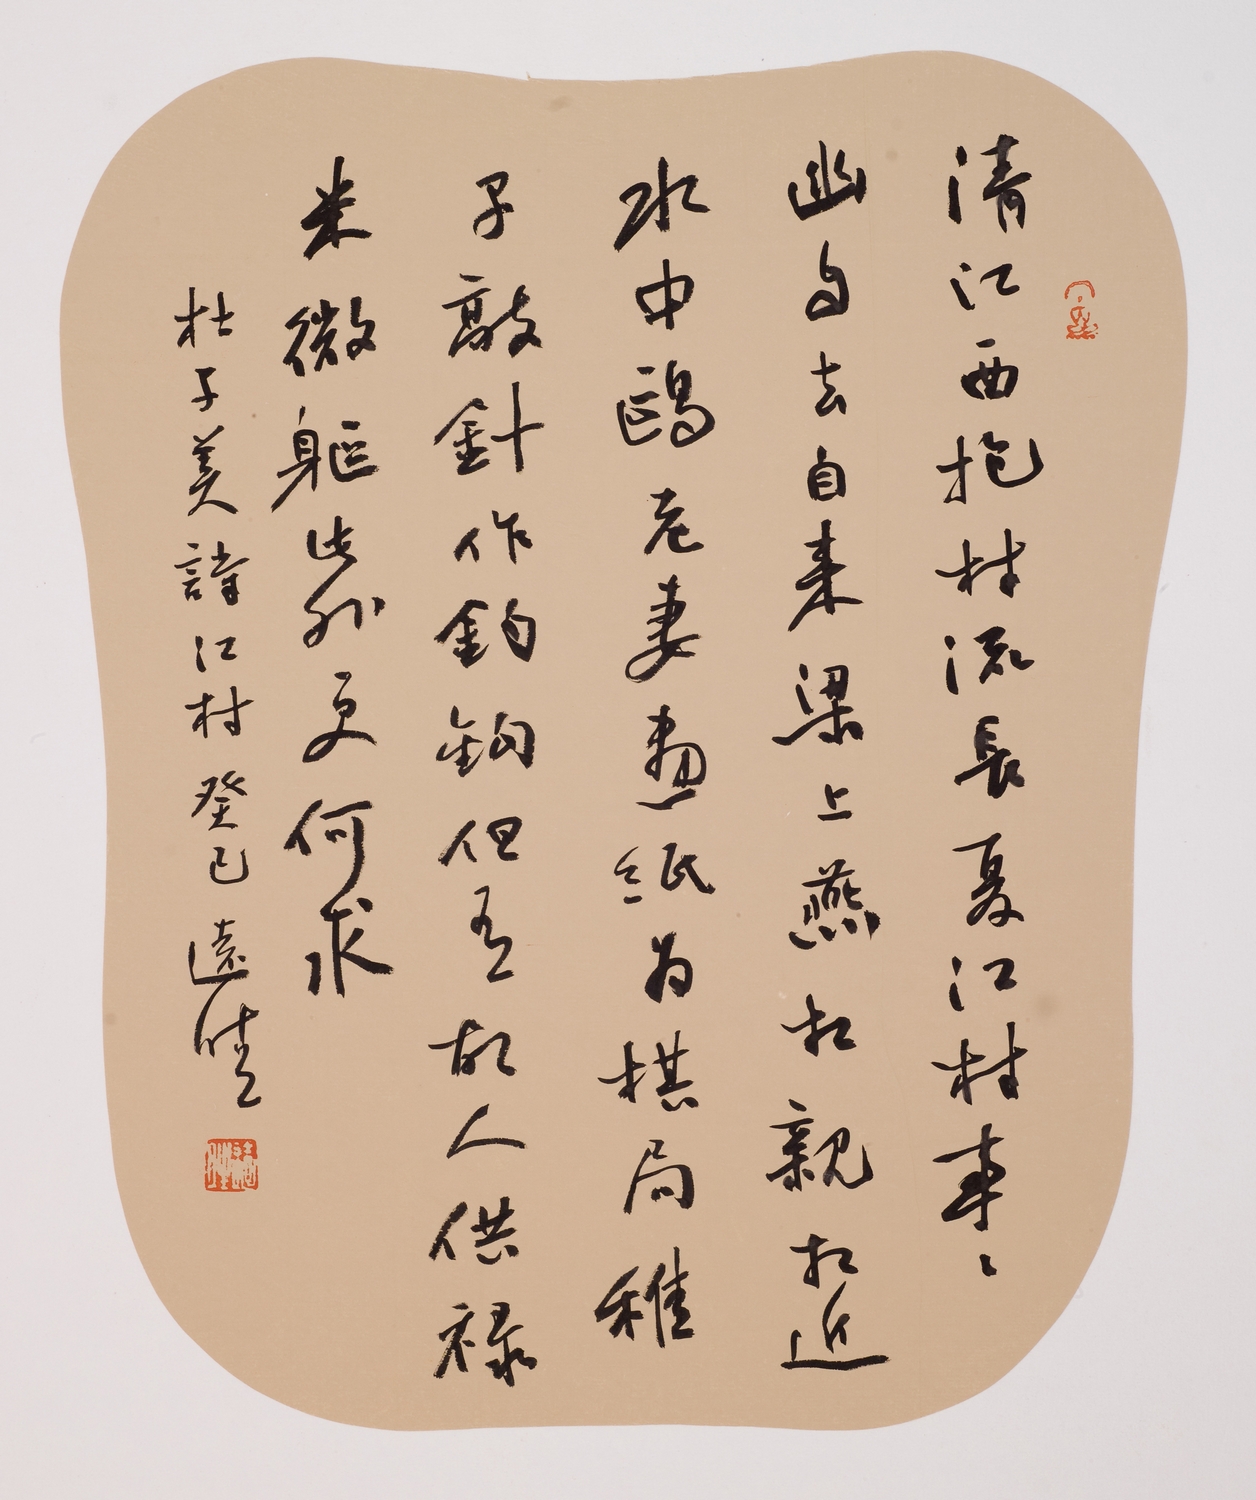 清江一曲抱村流長夏江村事〻
幽自去自来梁上燕相親相近
水中鷗老妻畫紙为棋局稚
子敲針作釣鈎但有故人供禄
米微軀此外更何求
杜子美詩江村癸巳遠